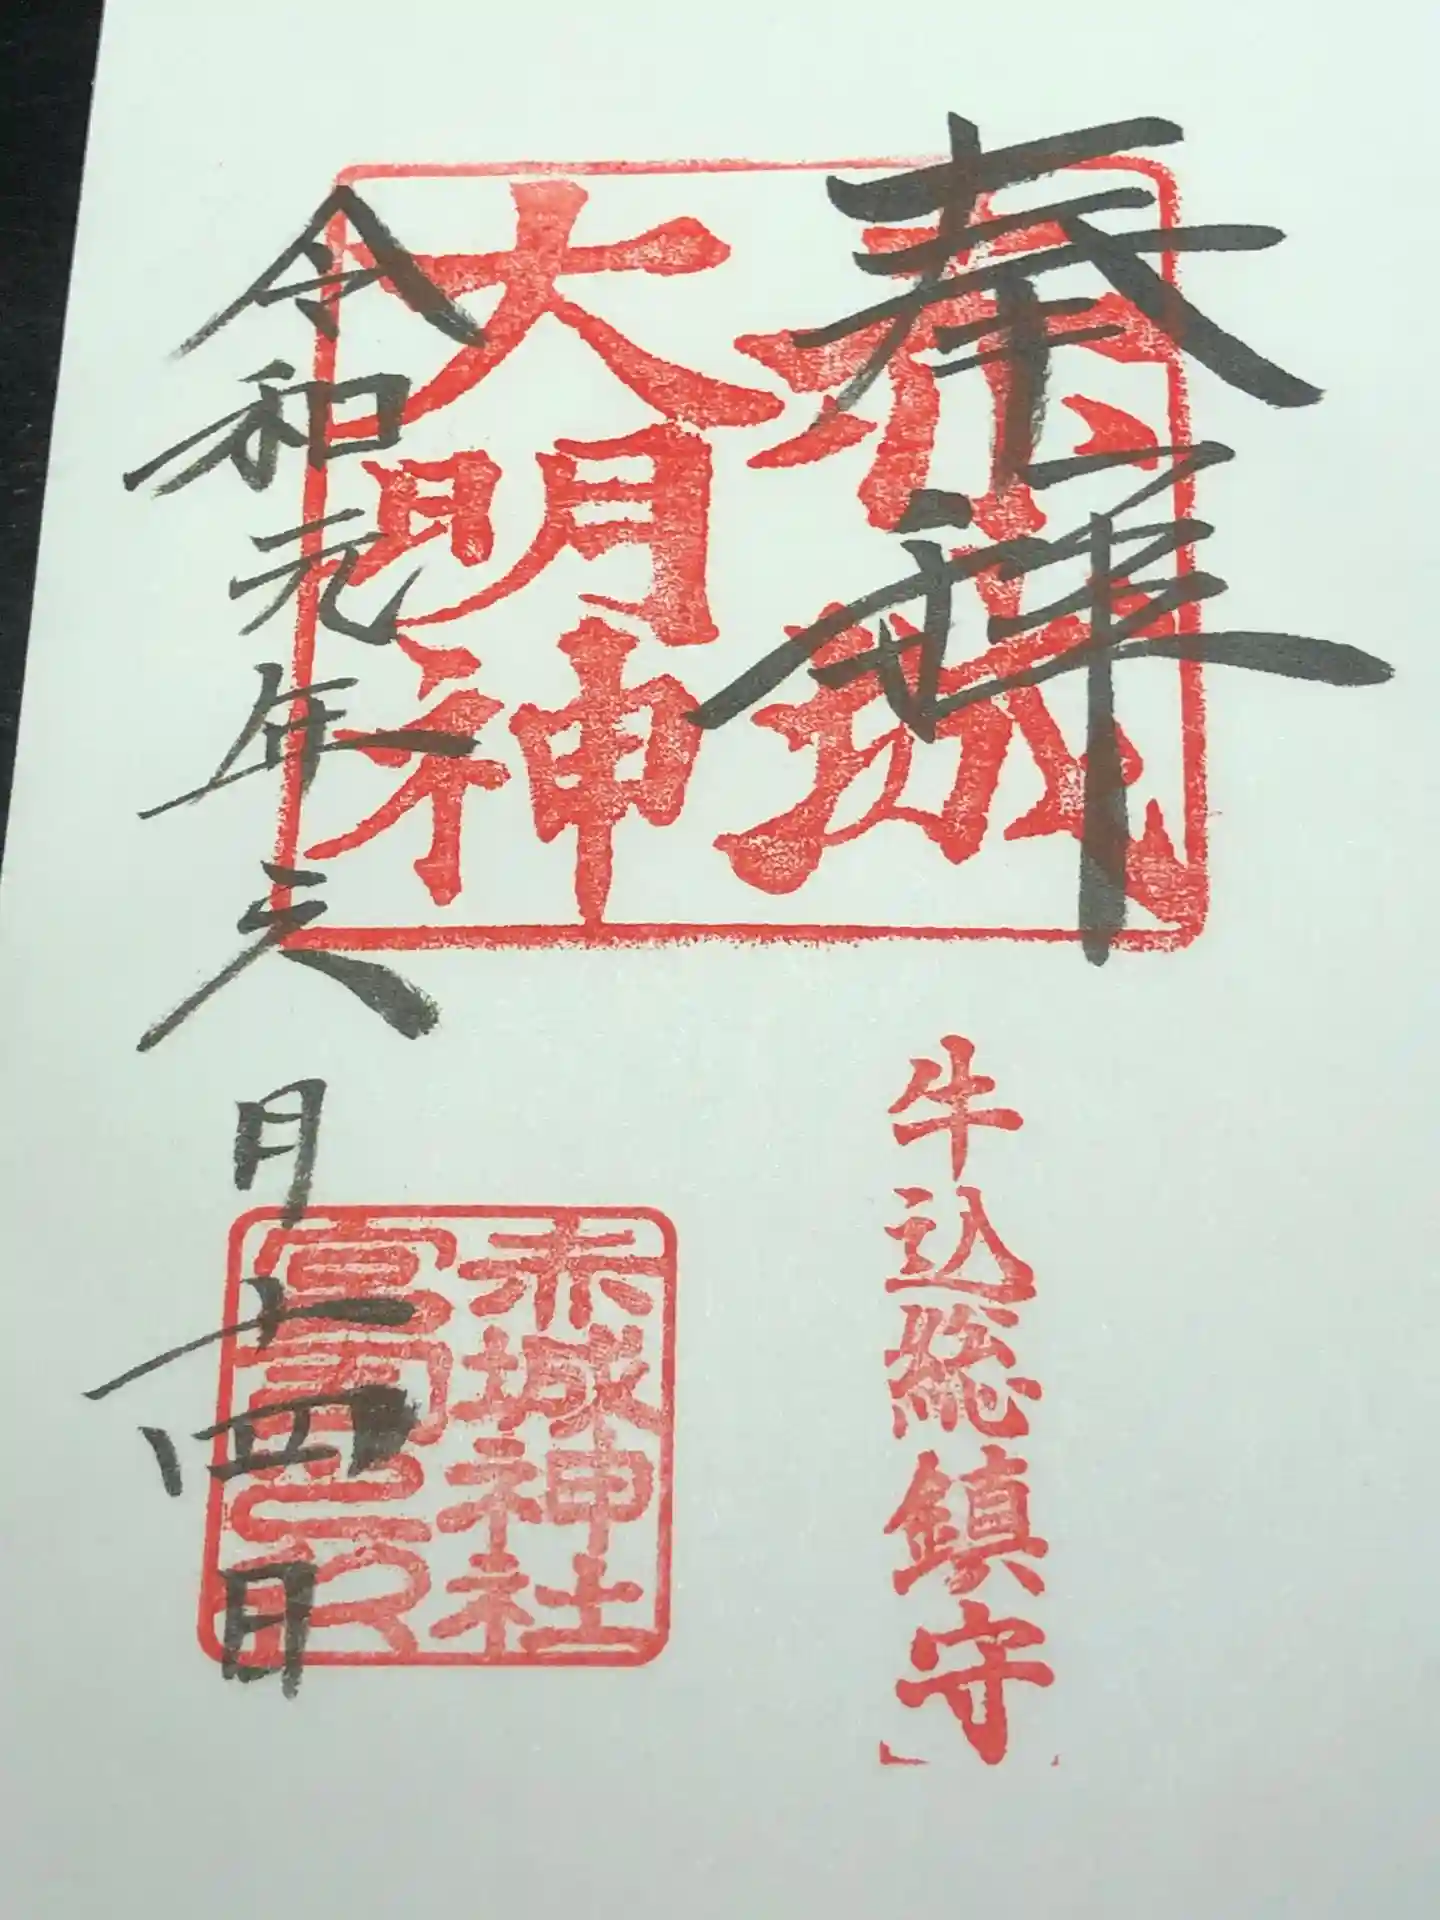 奉拝
赤城
大明神
牛込総鎮守
赤城神社
宮司之印
令和元年六月十四日